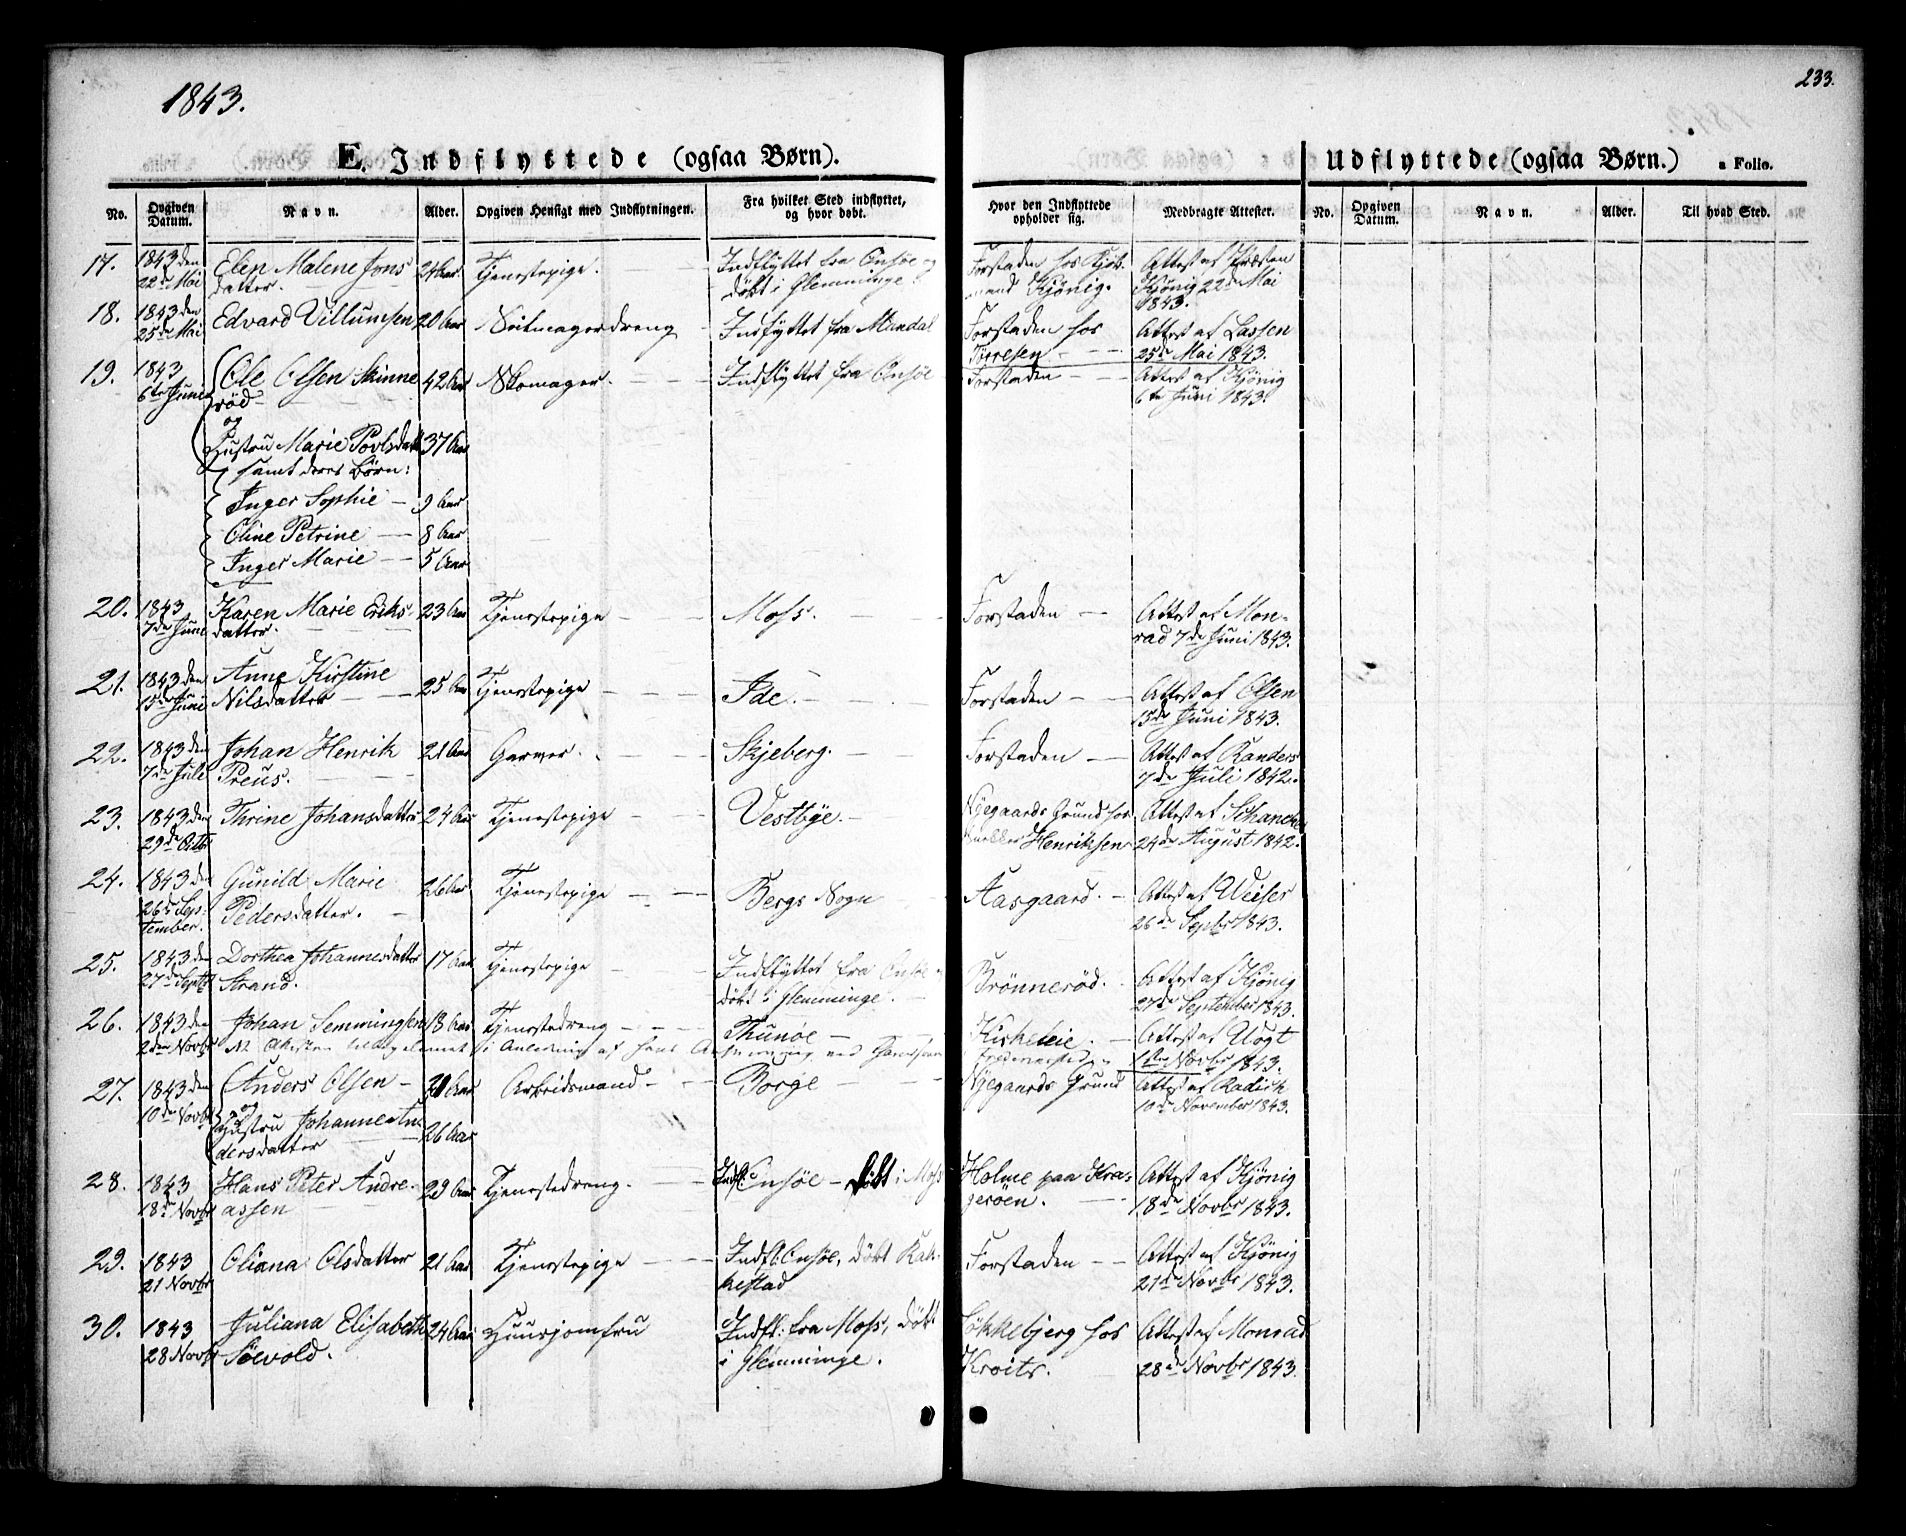 1843.
233.
E. Indflyttede (ogsaa Børn).
Udflyttede (ogsaa Børn.)
a Folio.
No.
Opgiven Datum.
Navn.
Alder.
Opgiven Hensigt med Indflytningen.
Fra hvilket Sted indflyttet, og hvor døbt.
Hvor den Indflyttede opholder sig.
Medbragte Attester.
No.
Opgiven Datum.
Navn.
Alder.
Til hvad Sted.
17. 1843 den Elen Malene Jons 24 Aar. Tjenestepige. Indflyttet fra Onsöe og Forstaden hos Kjöb- Attest af Præsten
22de Mai datter. döbt i Glemminge. mand Kjönig. Kjönig 22de Mai
1843.
18. 1843 den Edvard Villumsen 20 Aar dreng Indflyttet fra Mandal Forstaden hos Attest af Lassen
25de Mai Törresen 25de Mai 1843.
19. 1843 Ole Olsen Skinne 42 Aar Skomager. Indflyttet fra Onsöe Forstaden Attest af Kjönig
6te Juni röd 6te Juni 1843.
og
Hustru Marie Povlsdatt 37 Aar
samt deres Börn:
Inger Sophie 9 Aar
Oline Petrine 8 Aar
Inger Marie 5 Aar
20. 1843 Karen Marie Eriks- 23 Aar Tjenestepige Moss. Forstaden Attest af Mon-
7de Juni datter. rad 7de Juni 1843.
21. 1843 den Anne Kirstine
15de Juni Nilsdatter 25 Aar Tjenestepige Ide. Forstaden Attest af Olsen
15de Juni 1843.
22. 1843 den Johan Henrik 21 Aar Garver. Skjeberg. Forstaden Attest af Randers
7de Juli Preus. 7de Juli 1842.
23. 1843 den Thrine Johansdatter 24 Aar Tjenestepige Vestbye. Nyegaards Grund hos Attest af Schancke
29de Octb Henriksen 24de August 1842.
24. 1843 den Gunild Marie 26 Aar Tjenestepige Bergs Sogn Aasgaard. Attest af
26de Sep- Pedersdatter. 26de Septbr 1843.
tember.
25. 1843 den Dorthea Johannesdatter 17 Aar Tjenestepige Indflyttet fra Onsöe Brönneröd. Attest af Kjönig
27de Septb Strand. döbt i Glemminge. 27de September 1843.
26. 1843 den Johan Semmingsen 18 Aar Tjenestedreng Thunöe Kirkeleie. Attest af Vogt
2den Novbr i Anledning af hans 1ste Novbr 1843.
27. 1843 den Anders Olsen Aar Arbeidsmand Borge Nyegaards Grund Attest af Radich
10de Novbr og 10de November 1843.
Hustru Johanne An- 26 Aar
dersdatter
28. 1843 Hans Peter Andre- 29 Aar Tjenestedreng. Indfl. Onsöe döbt i Moss Holme paa Kra- Attest af Kjönig
18de Novbr assen geröen. 18de Novbr 1843.
29. 1843 Oliana Olsdatter 21 Aar Tjenestepige Indfl: Onsöe, döbt Rak- Forstaden Attest af Kjönig
21 Novbr kestad 21de Novbr 1843.
30. 1843 Juliana Elisabeth 24 Aar Huusjomfru Indfl: fra Moss, döbt Lökkebjerg hos Attest af Monrad
28 Novbr Söevold. i Glemminge. Kroits. 28de Novbr 1843.